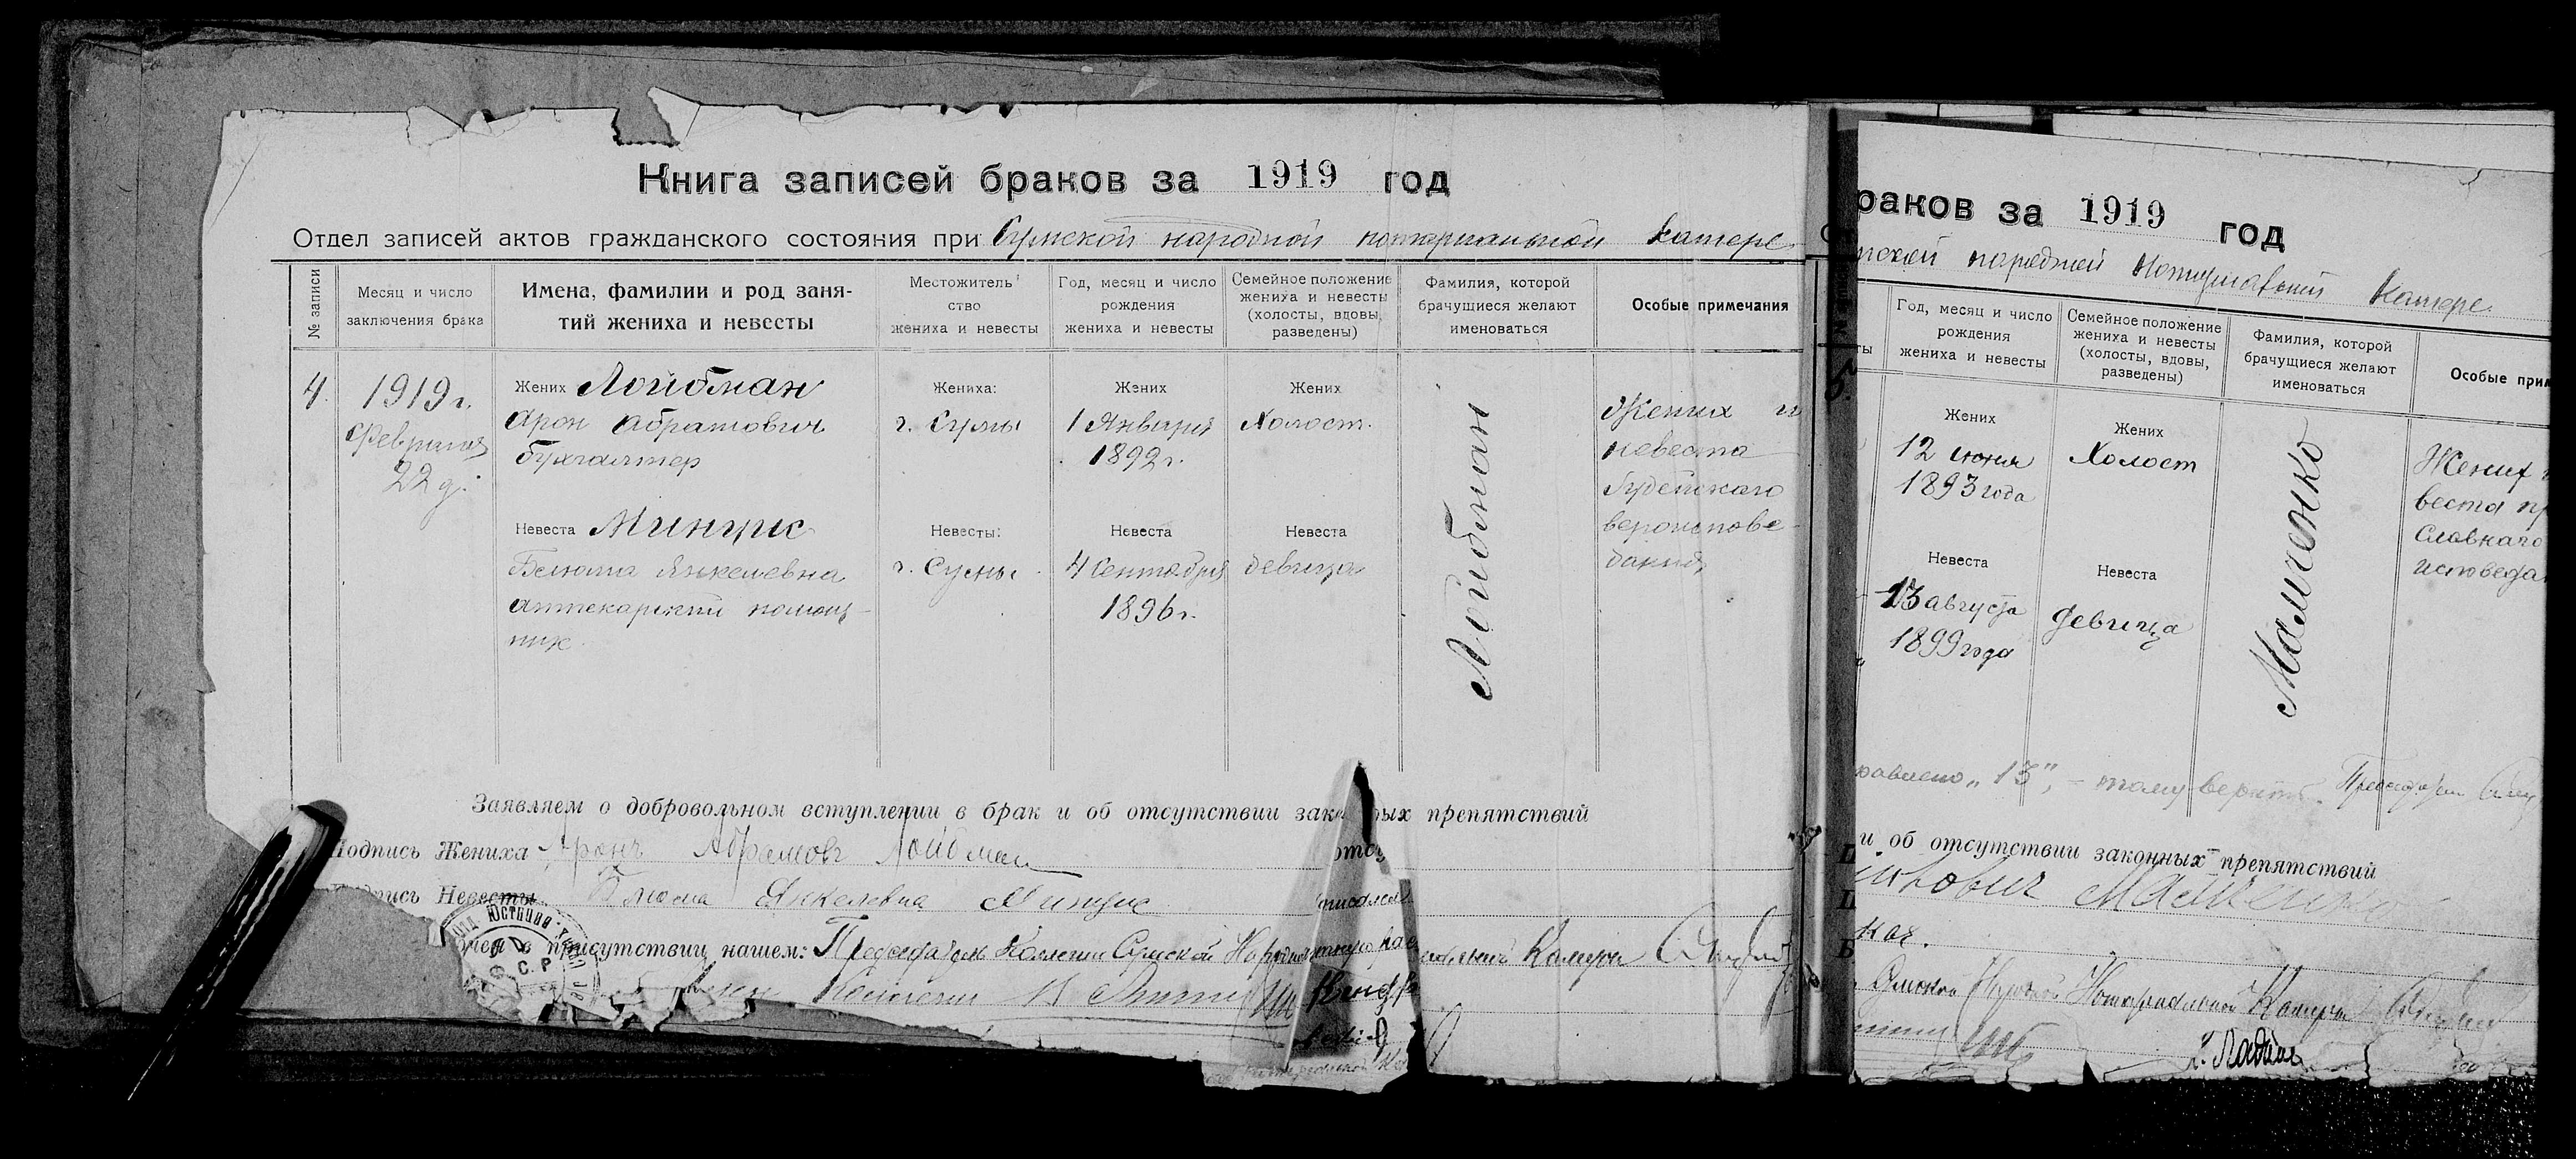 Книга записей браков за 1919 год
Отдел записей актов гражданского состояния при Сумской народной нотариальной камере
№ записи
Месяц и число
заключения брака
Имена, фамилии и род заня-
тий жениха и невесты
Местожитель
ство
жениха и невесты
Год, месяц и число
рождения
жениха и невесты
Семейное положение
жениха и невесты
(холосты, вдовы,
разведены)
Фамилия, которой
брачущиеся желают
именоваться
Особые примечания
4.
1919 г.
Февраля
22 д.
Жених Лойбман
Арон Абрамович
бухгалтер
Невеста Минцис
Блюма Янкелевна
аптекарский помощ-
ник
Жениха:
г. Сумы
Невесты:
г. Сумы
Жених
1 Января
1892 г.
Невеста
4 Сентября
1896 г.
Жених
Холост.
Невеста
девица
Лойбман
Жених и
невеста
Іудейскаго
вероиспове-
дания
Заявляем о добровольном вступлении в брак и об отсутствии зак ных препятствий
Подпись Жениха Аронъ Абрамовъ Лойбман
Подпись Невесты Блюма Янкелевна Минцис
в присутствии нашем: Председатель Коллегии Сумской Камеры
Коллегии
юстиции
С. Р
раков за 1919 год
мской народной Нотариальной Камере
Год, месяц и число
рождения
жениха и невесты
Семейное положение
жениха и невесты
(холосты, вдовы,
разведены)
Фамилия, которой
брачущиеся желают
именоваться
Особые прим
ты
Жених
12 июня
1893 года
Невеста
13 августа
1899 года
Жених
Холост
Невеста
девица
Жених
веста пр
славнаго
исповеда
"13", - тому верить.
и об отсутствии законных препятствий
ьович
Сумской Нотариальной Камеры